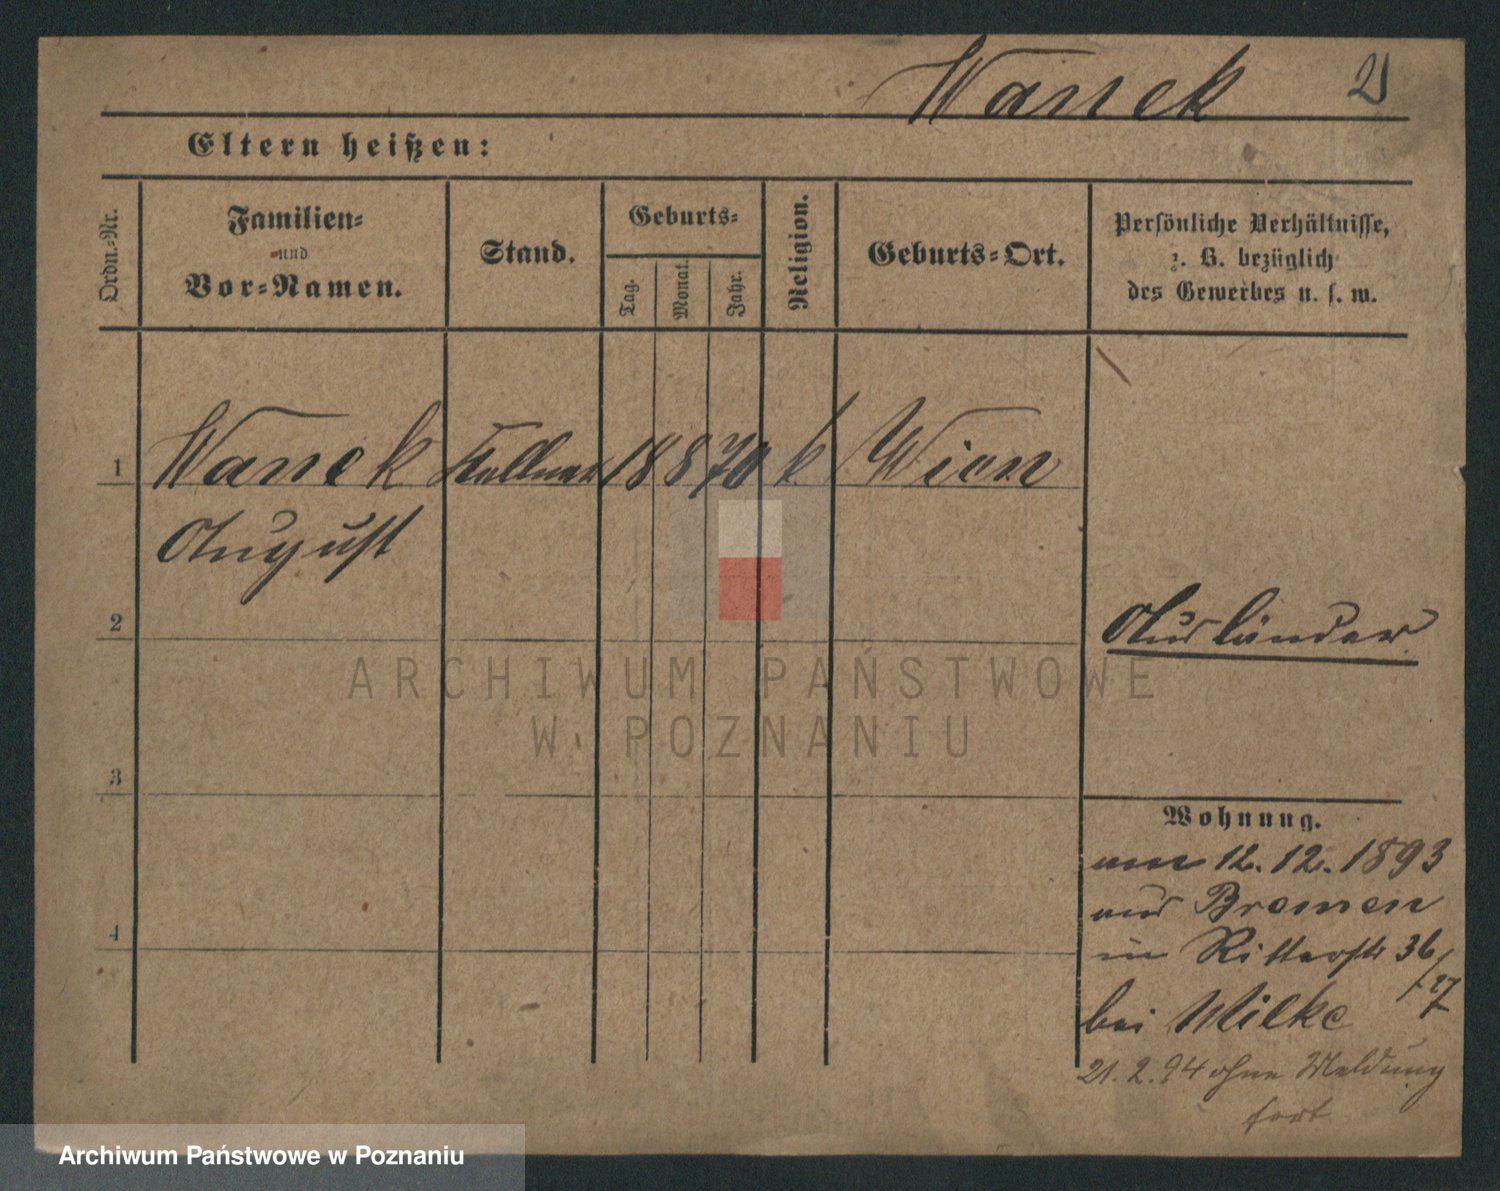 Wanek 21
Eltern heißen:
Ordn.-Nr.
Familien-
und
Vor-Namen.
Stand.
Geburts-
Tag.
Monat.
Jahr.
Religion.
Geburts-Ort.
Persönliche Verhältnisse,
z. B. bezüglich
des Gewerbes u. s. w.
1 Wanek Kellner 18 8 70 k Wien
August
2
Ausländer.
ARCHIWUM PAŃSTWOWE
W POZNANIU
3
Wohnung.
am 12.12.1893
aus Bremen
4
in Ritterstr 36
/27
bei Wilke
21.2.94 ohne Meldung
fort
Archiwum Państwowe w Poznaniu